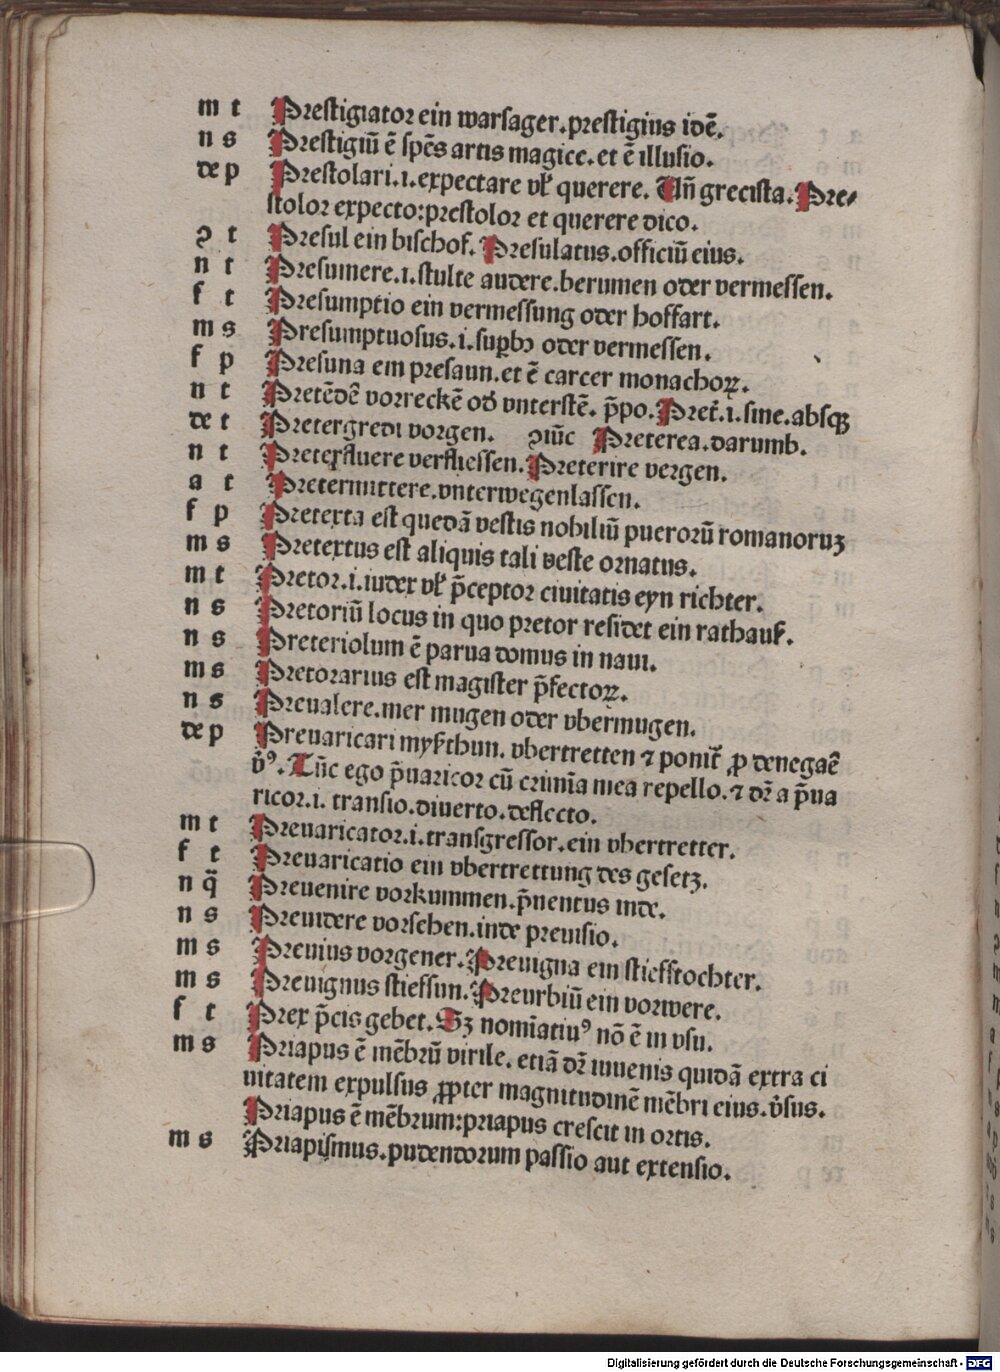 m t Prestigiator ein warsager.prestigius idē.
n s Prestigiū ē spēs artis magice.et ē illusio.
de p Prestolari.i.expectare vl̓ querere. Un̄ grecista.Pre⸗
stolor expecto:prestolor et querere dico.
ꝯ t Presul ein bischof. Presulatus.officiū eius.
n t Presumere.i.stulte audere.berumen oder vermessen.
f t Presumptio ein vermessung oder hoffart.
m s Presumptuosus.i.suꝑbꝰ oder vermessen.
f p Presuna em presaun.et ē carcer monachoꝝ.
n t Pretēdē vorreckē od̓ vnterstē. p̄po. Preť.i.sine.absqꝫ
de t Pretergredi vorgen. ꝯiūc Preterea.darumb.
n t Preterfluere verfliessen.Preterire vergen.
a t Pretermittere.vnterwegenlassen.
f p Pretexta est quedā vestis nobiliū puerorū romanoruꝫ
m s Pretextus est aliquis tali veste ornatus.
m t Pretor.i.iudex vl̓ p̄ceptor ciuitatis eyn richter.
n s Pretoriū locus in quo pretor residet ein rathauß.
n s Preteriolum ē parua domus in naui.
m s Pretorarius est magister p̄fectoꝝ.
n s Preualere.mer mugen oder vbermugen.
de p Preuaricari myßthun. vbertretten ⁊ ponit̄ ꝓ denegaē
v̓ꝰ. Tūc ego p̄uaricor cū crimīa mea repello.⁊ dr̄ a p̄ua
ricor.i. transio.diuerto.deflecto.
m t Preuaricator.i.transgressor.ein vbertretter.
f t Preuaricatio ein vbertrettung des gesetz.
n q̄ Preuenire vorkummen.p̄uentus inde.
n s Preuidere vorsehen.inde preuisio.
m s Preuius vorgener.Preuigna ein stiefftochter.
m s Preuignus stiefsun.Preurbiū ein vorwere.
f t Prex p̄cis gebet. Sꝫ nomīatiuꝰ nō ē in vsu.
m s Priapus ē mēbrū virile. etiā dr̄ iuuenis quidā extra ci
uitatem expulsus ꝓpter magnitudinē mēbri eius.v̓sus.
Priapus ē mēbrum:priapus crescit in ortis.
m s Priapismus.pudendorum passio aut extensio.
Digitalisierung gefördert durch die Deutsche Forschungsgemeinschaft - DFG